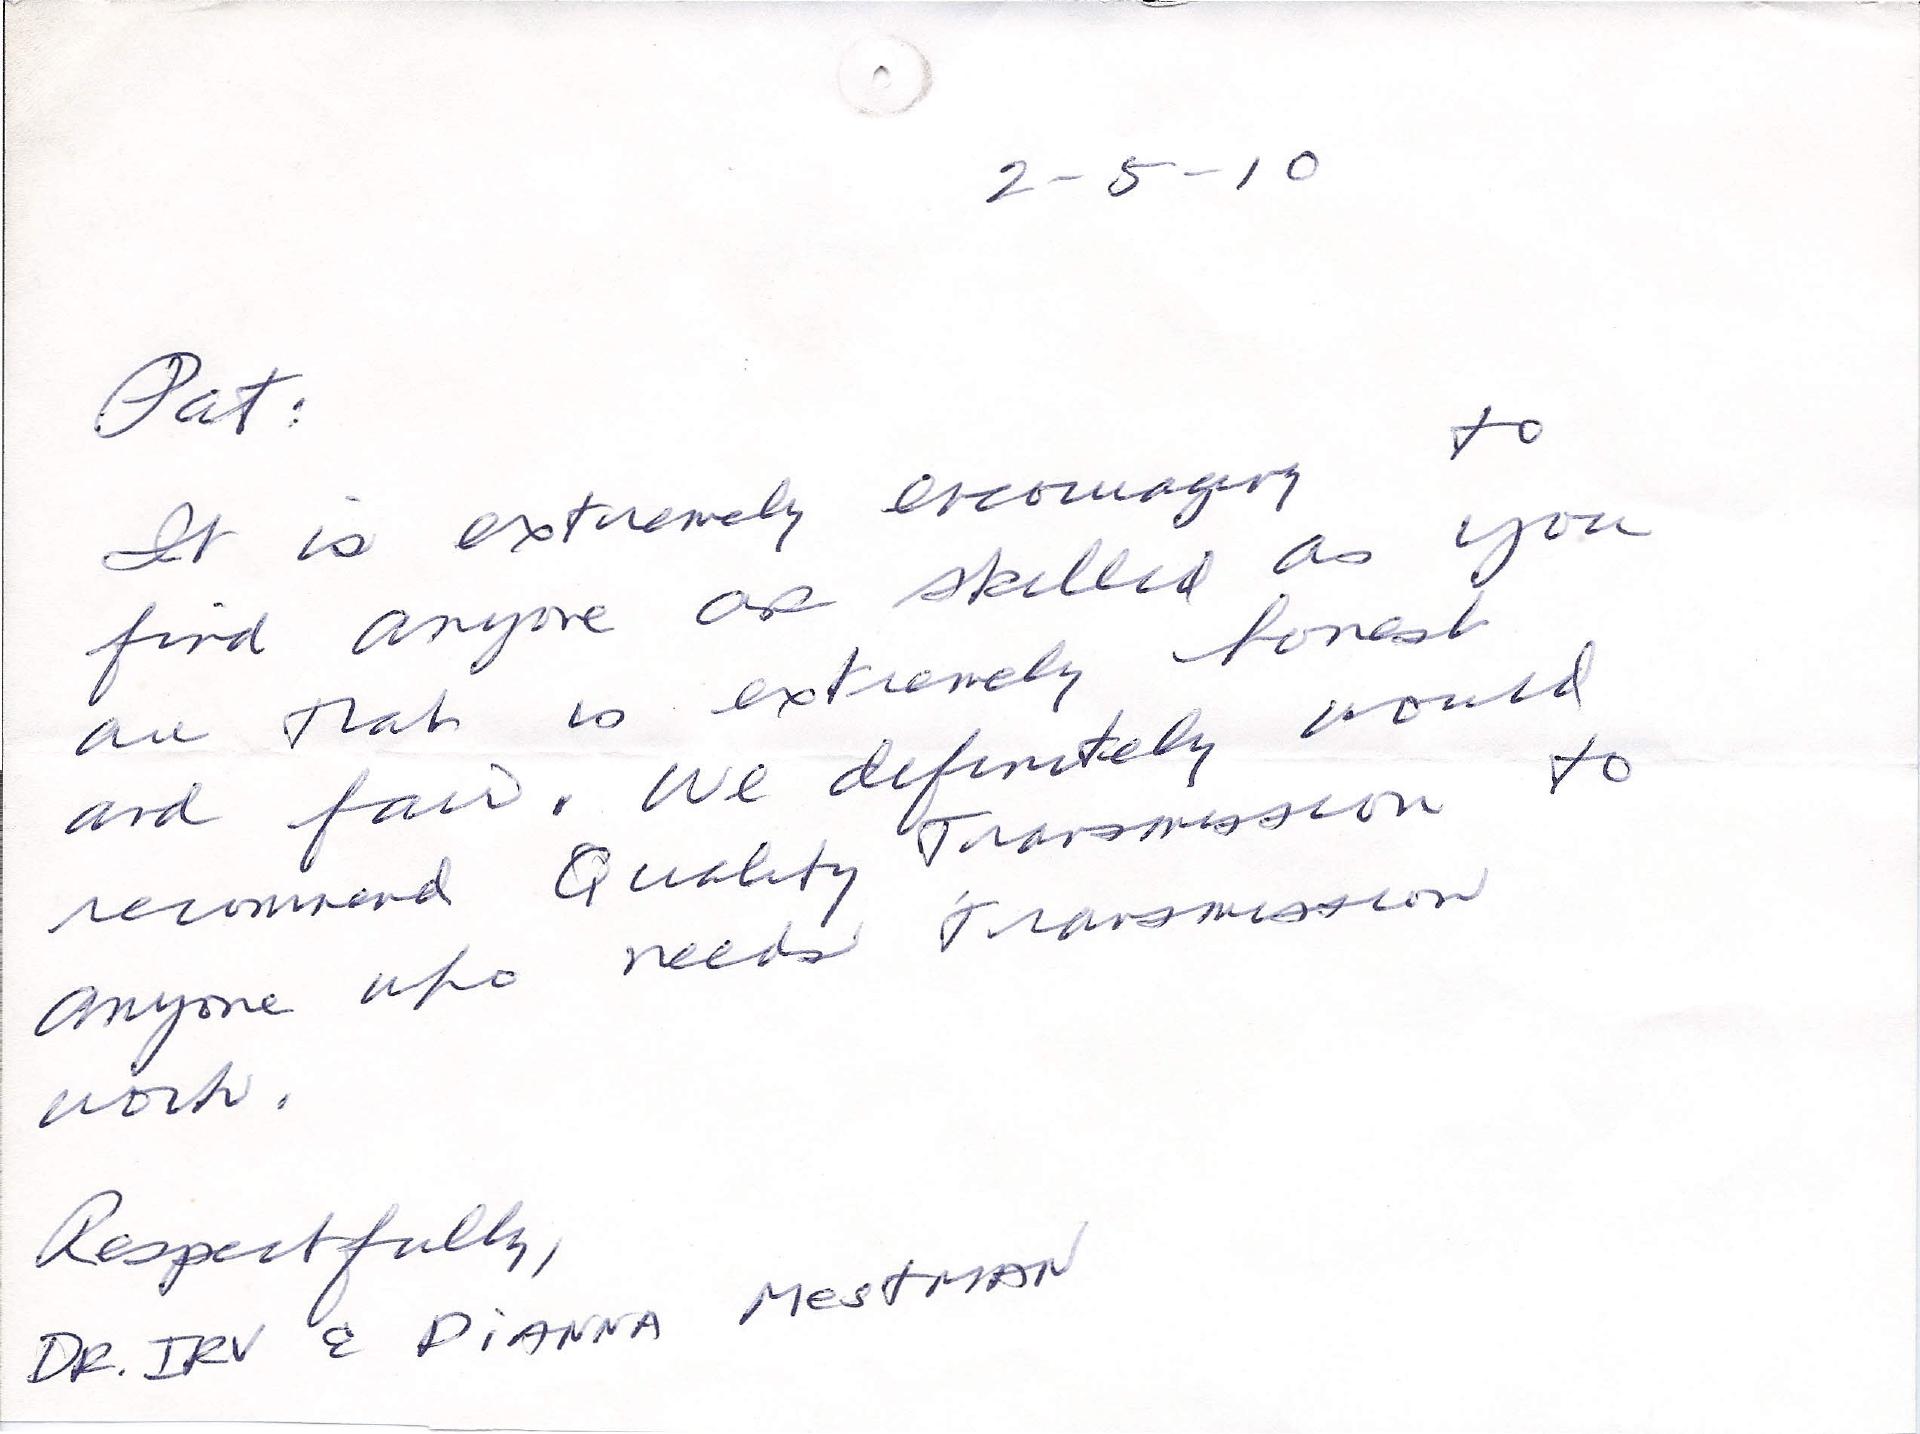 2-5-10
Pat:
It is extremely encouraging to
find anyone as skilled as you
are that is extremely honest
and fair. We definitely would
recommend Quality Transmission to
anyone who needs transmission
work.
Respectfully,
DR. IRV & DIANNA MESTMAN